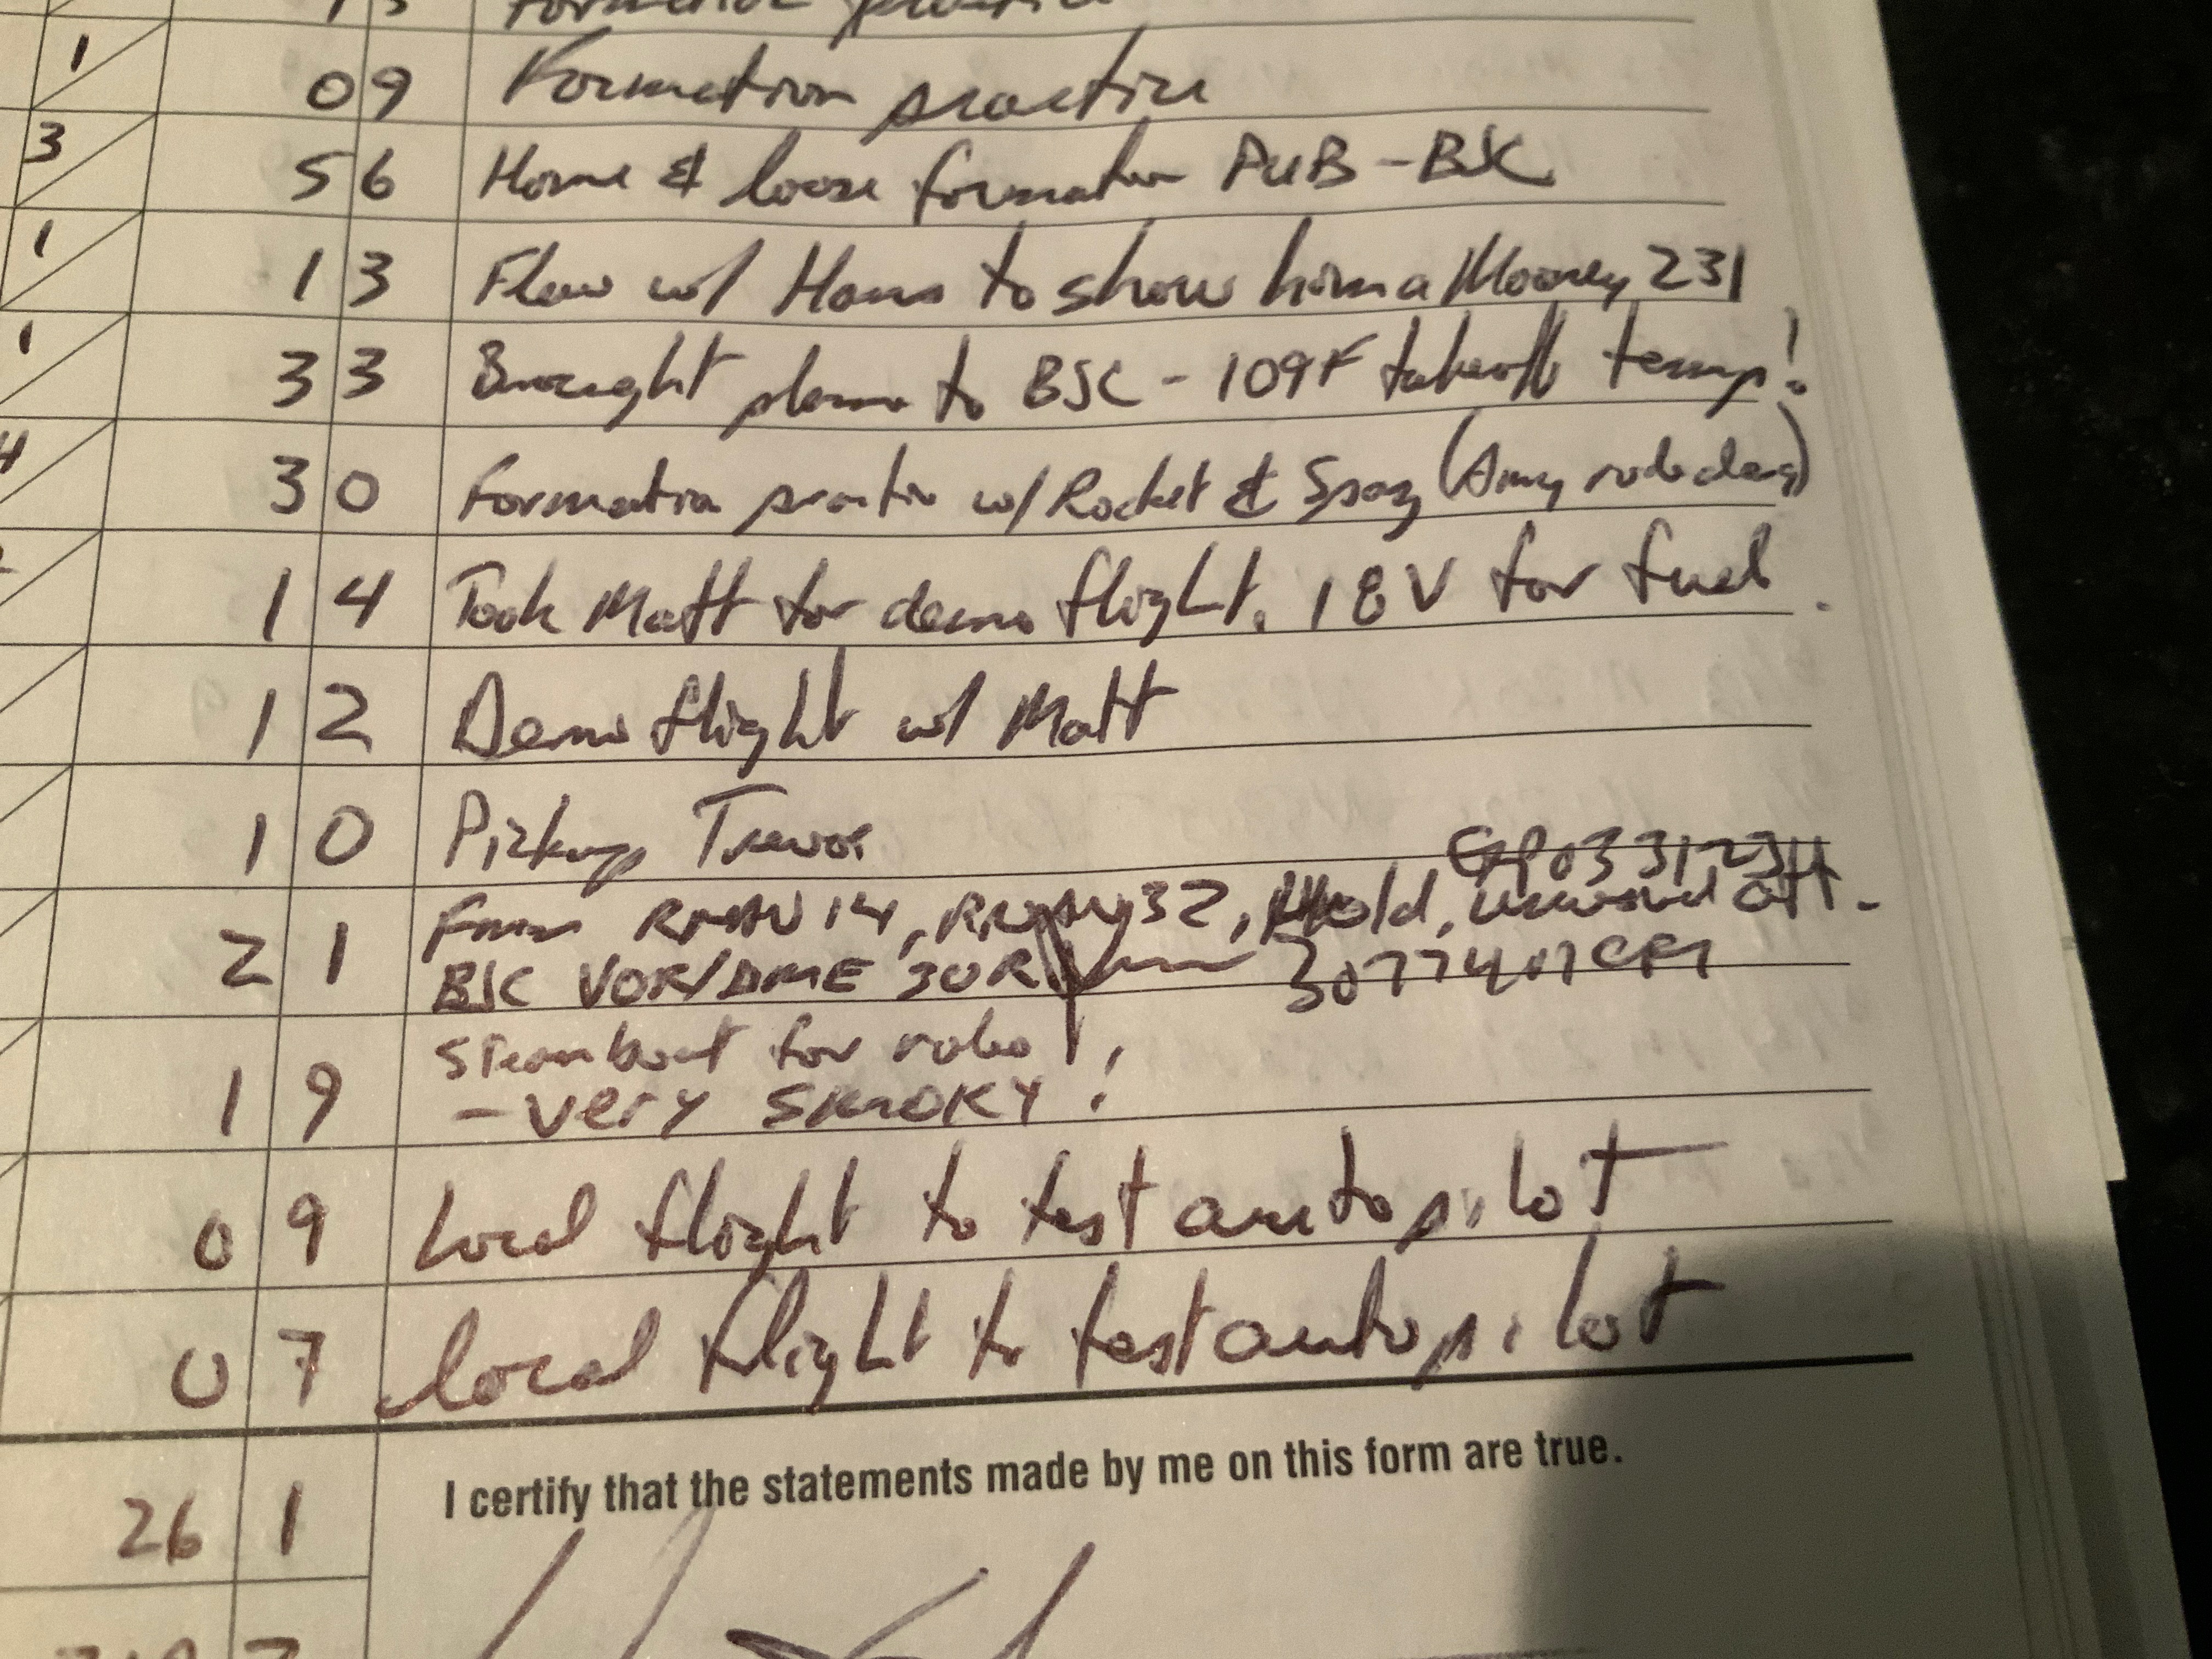 1 13 Formation practice
1 09 Formation practice
3 56 Home & loose formation PUB-BJC
1 13 Flew w/ Hans to show him a Mooney 231
1 33 Brought plane to BJC - 109F takeoff temp!
4 30 Formation practice w/ Rocket & Spaz (Amy rode along)
14 Took Matt for demo flight. 18V for fuel.
12 Demo flight w/ Matt
10 Pickup Trevor
EXP033123
21 From RNAV 14, RNAV 32, Hold, unusual att.
BJC VOR/DME 30R 3077401CFI
19 Steamboat for robot,
- very SMOKY!
09 Local flight to test autopilot
07 Local flight to test autopilot
I certify that the statements made by me on this form are true.
26 1